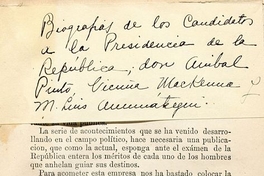 Biografias de los Candidatos
a la Presidencia de la
República, don Anibal
Pinto, Vicuna MacKenna y
M. Luis Amunategui.
La serie de acontecimientos que se ha venido desarro-
llando en el campo político, hace necesaria una publica-
cion, que como la actual, esponga ante el exámen de la
República entera los méritos de cada uno de los hombres
que anhelan guiar sus destinos.
Para acometer esta empresa nos ha bastado colocar la